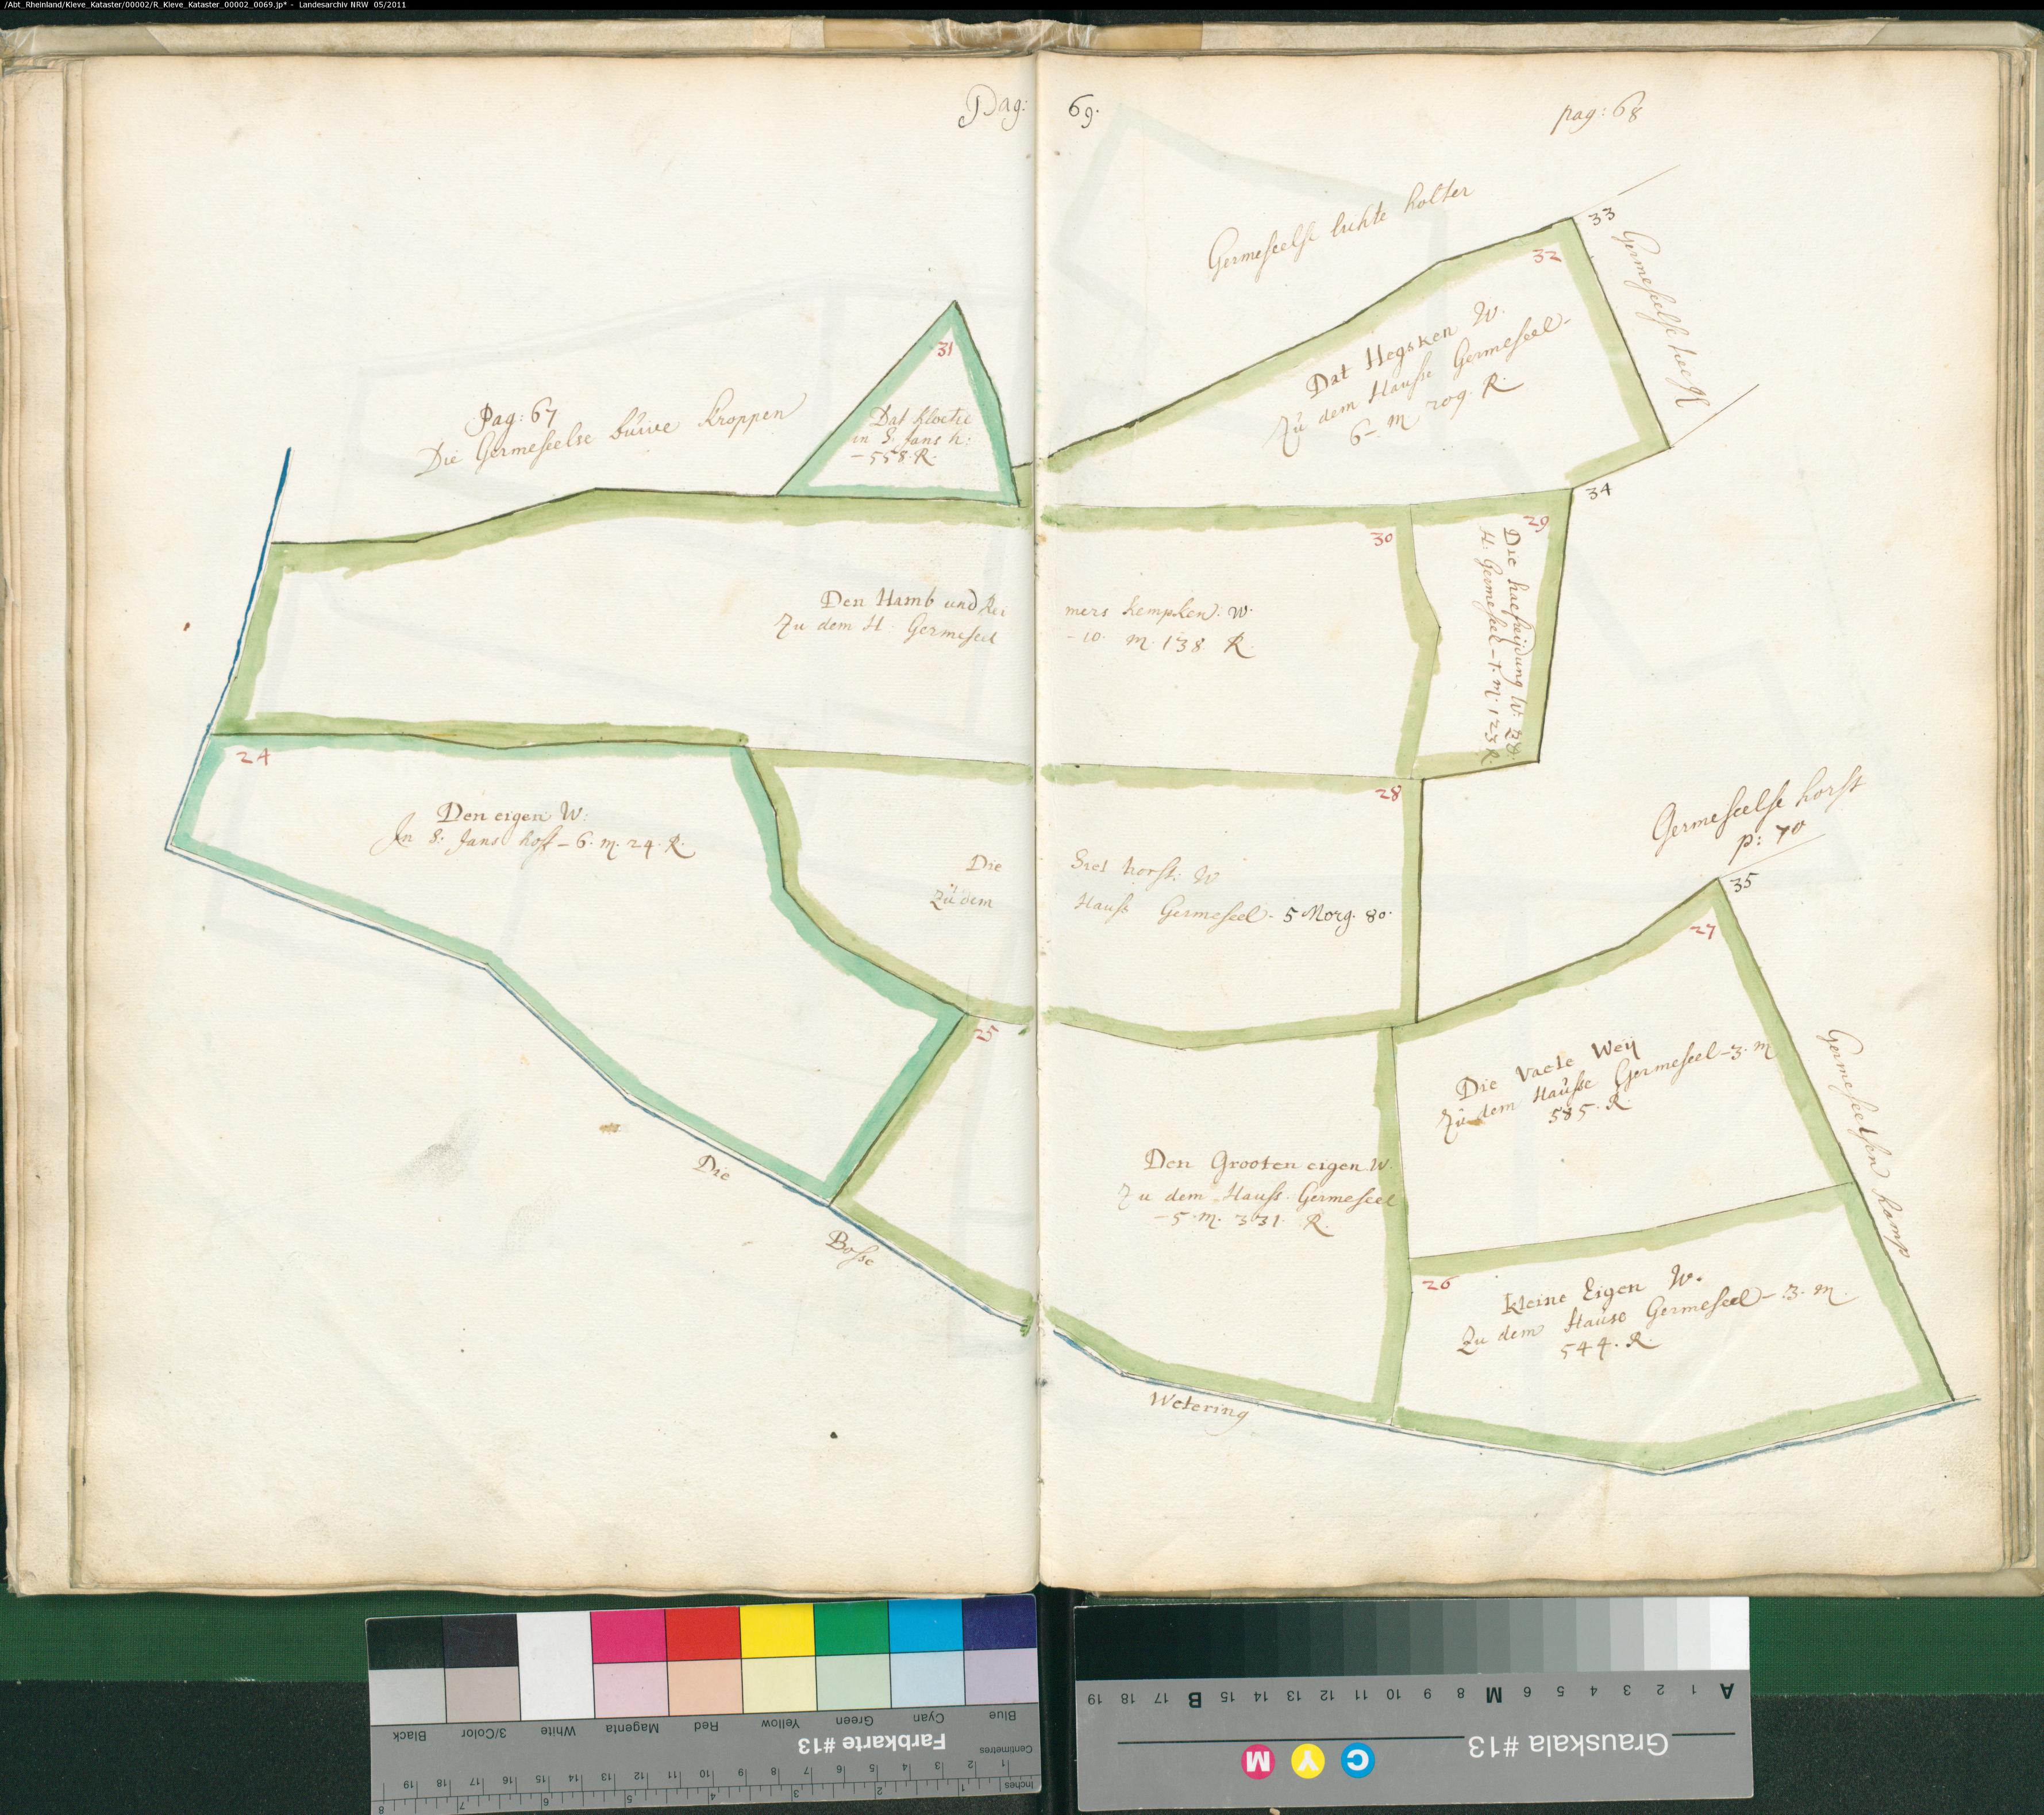 /Abt_Rheinland/Kleve_Kataster/00002/R_Kleve_Kataster_00002_0069.jp* - Landesarchiv NRW 05/2011
Pag: 69.
pag: 68
Germeseelse luhte holter
33
32
Germeseelse
Dat Hegsken W.
Zu dem Hausse Germeseel-
6-m 209. R.
31
Dat kloetie
in S. Jans h:
-558.R.
Pag: 67
Die Germeseelse buive kroppen
34
29
30
Die W: Zd
H: Germeseel-1.m: 123 R.
Den Hamb und Rei mers kempken. W.
Zu dem H. Germeseel -10. m. 138 R.
24
Den eigen W:
In S: Jans hoff-6.m.24.R.
28
Die Siel horst: W
Zu dem Hauss Germeseel- 5 Morg. 80.
Germeseelse horst
p: 70
35
27
25
Die Vaele Weij
Zu dem Hausse Germeseel-3.m
585.R.
Germeseelsen kamp
Den Grooten eigen W.
Zu dem Hauss. Germeseel
-5.m. 331. R.
26
kleine Eigen W.
Zu dem Hause Germeseel-3.m.
544.R.
Die Bosse Wetering
Black
3/Color
White
Magenta
Red
Yellow
Green
Cyan
Blue
Farbkarte #13
Centimetres
19 18 17 16 15 14 13 12 11 10 9 8 7 6 5 4 3 2 1
Inches
8 7 6 5 4 3 2 1
19 18 17 B 15 14 13 12 11 10 9 8 M 6 5 4 3 2 1 A
Grauskala #13
C Y M